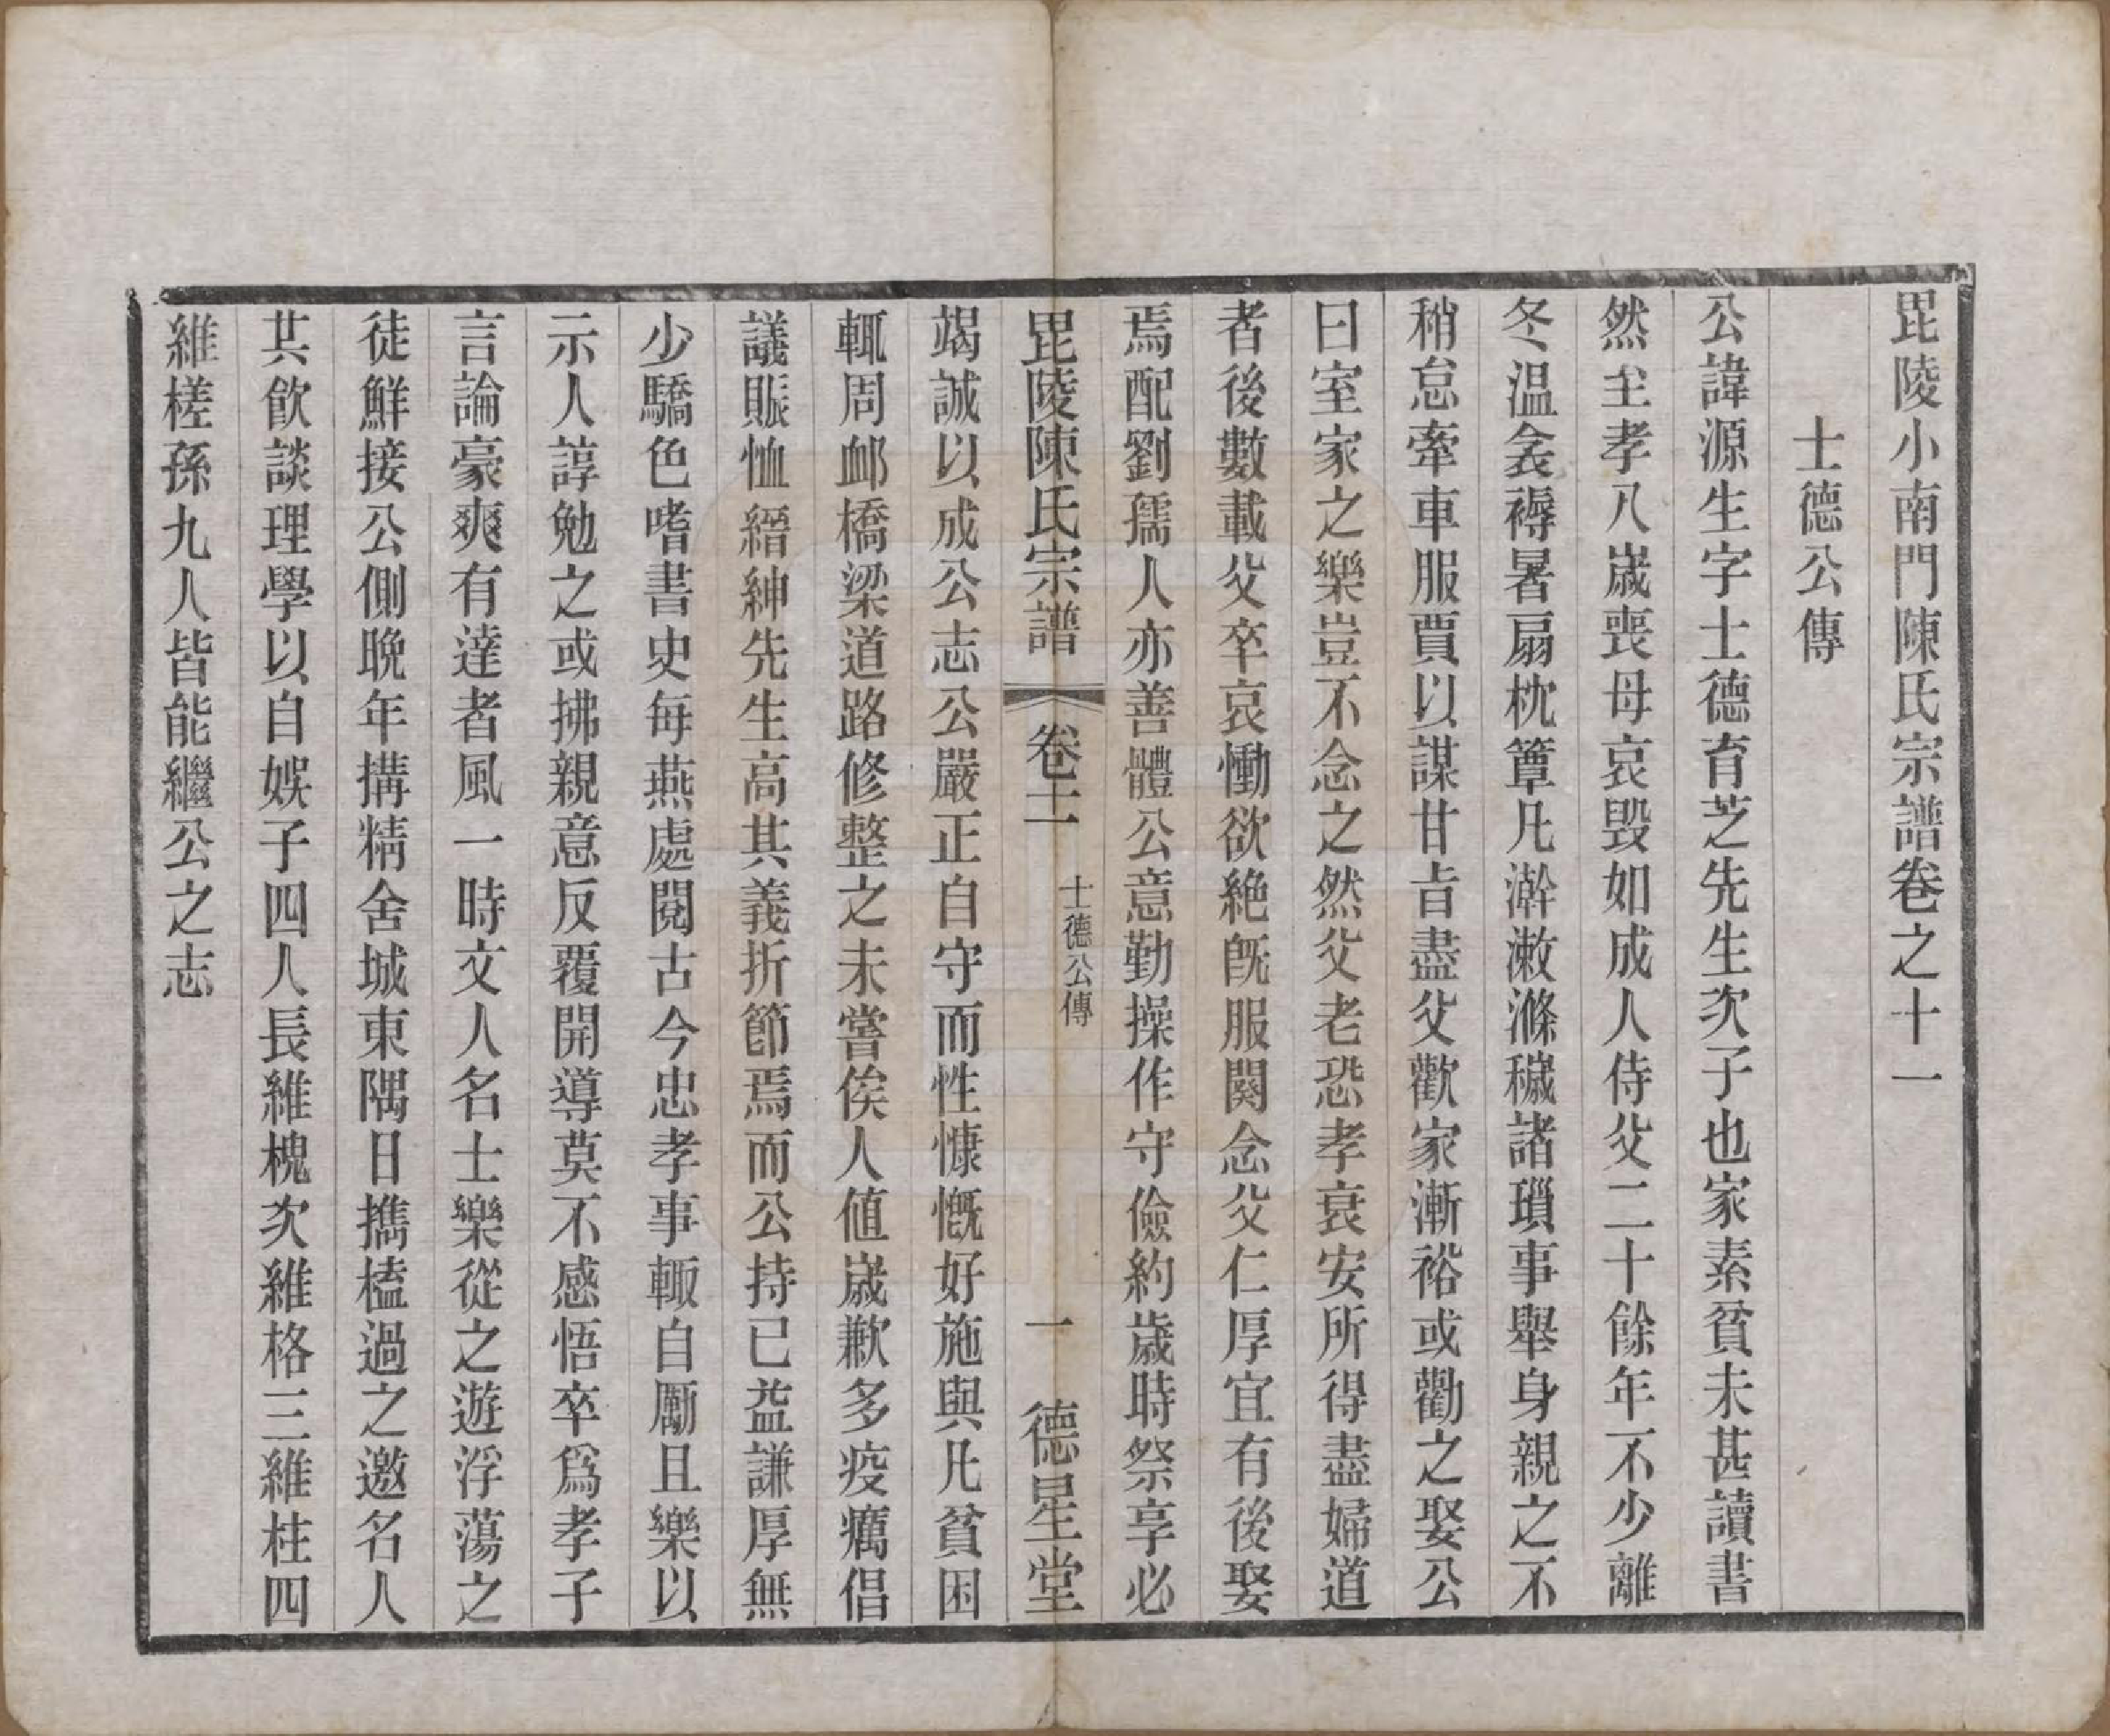 毘陵小南門陳氏宗譜卷之十一
士德公傳
公諱源生字士德育芝先生次子也家素貧未甚讀書
然至孝八嵗喪母哀毀如成人侍父二十餘年不少離
冬温衾褥暑扇枕簟凡澣漱滌穢諸瑣事舉身親之不
稍怠牽車服賈以謀甘旨盡父歡家漸裕或勸之娶公
曰室家之樂豈不念之然父老恐孝衰安所得盡婦道
者後數載父卒哀慟欲絶旣服闋念父仁厚宜有後娶
焉配劉孺人亦善體公意勤操作守儉約歲時祭享必
毘陵陳氏宗譜 卷十一 士德公傳 一 德星堂
竭誠以成公志公嚴正自守而性慷慨好施與凡貧困
輒周卹橋梁道路修整之未嘗俟人值嵗歉多疫癘倡
議賑恤縉紳先生高其義折節焉而公持已益謙厚無
少驕色嗜書史每燕處閱古今忠孝事輒自勵且樂以
示人諄勉之或拂親意反覆開導莫不感悟卒爲孝子
言論豪爽有達者風一時文人名士樂從之遊浮蕩之
徒鮮接公側晚年搆精舍城東隅日擕榼過之邀名人
共飲談理學以自娛子四人長維槐次維格三維柱四
維槎孫九人皆能繼公之志